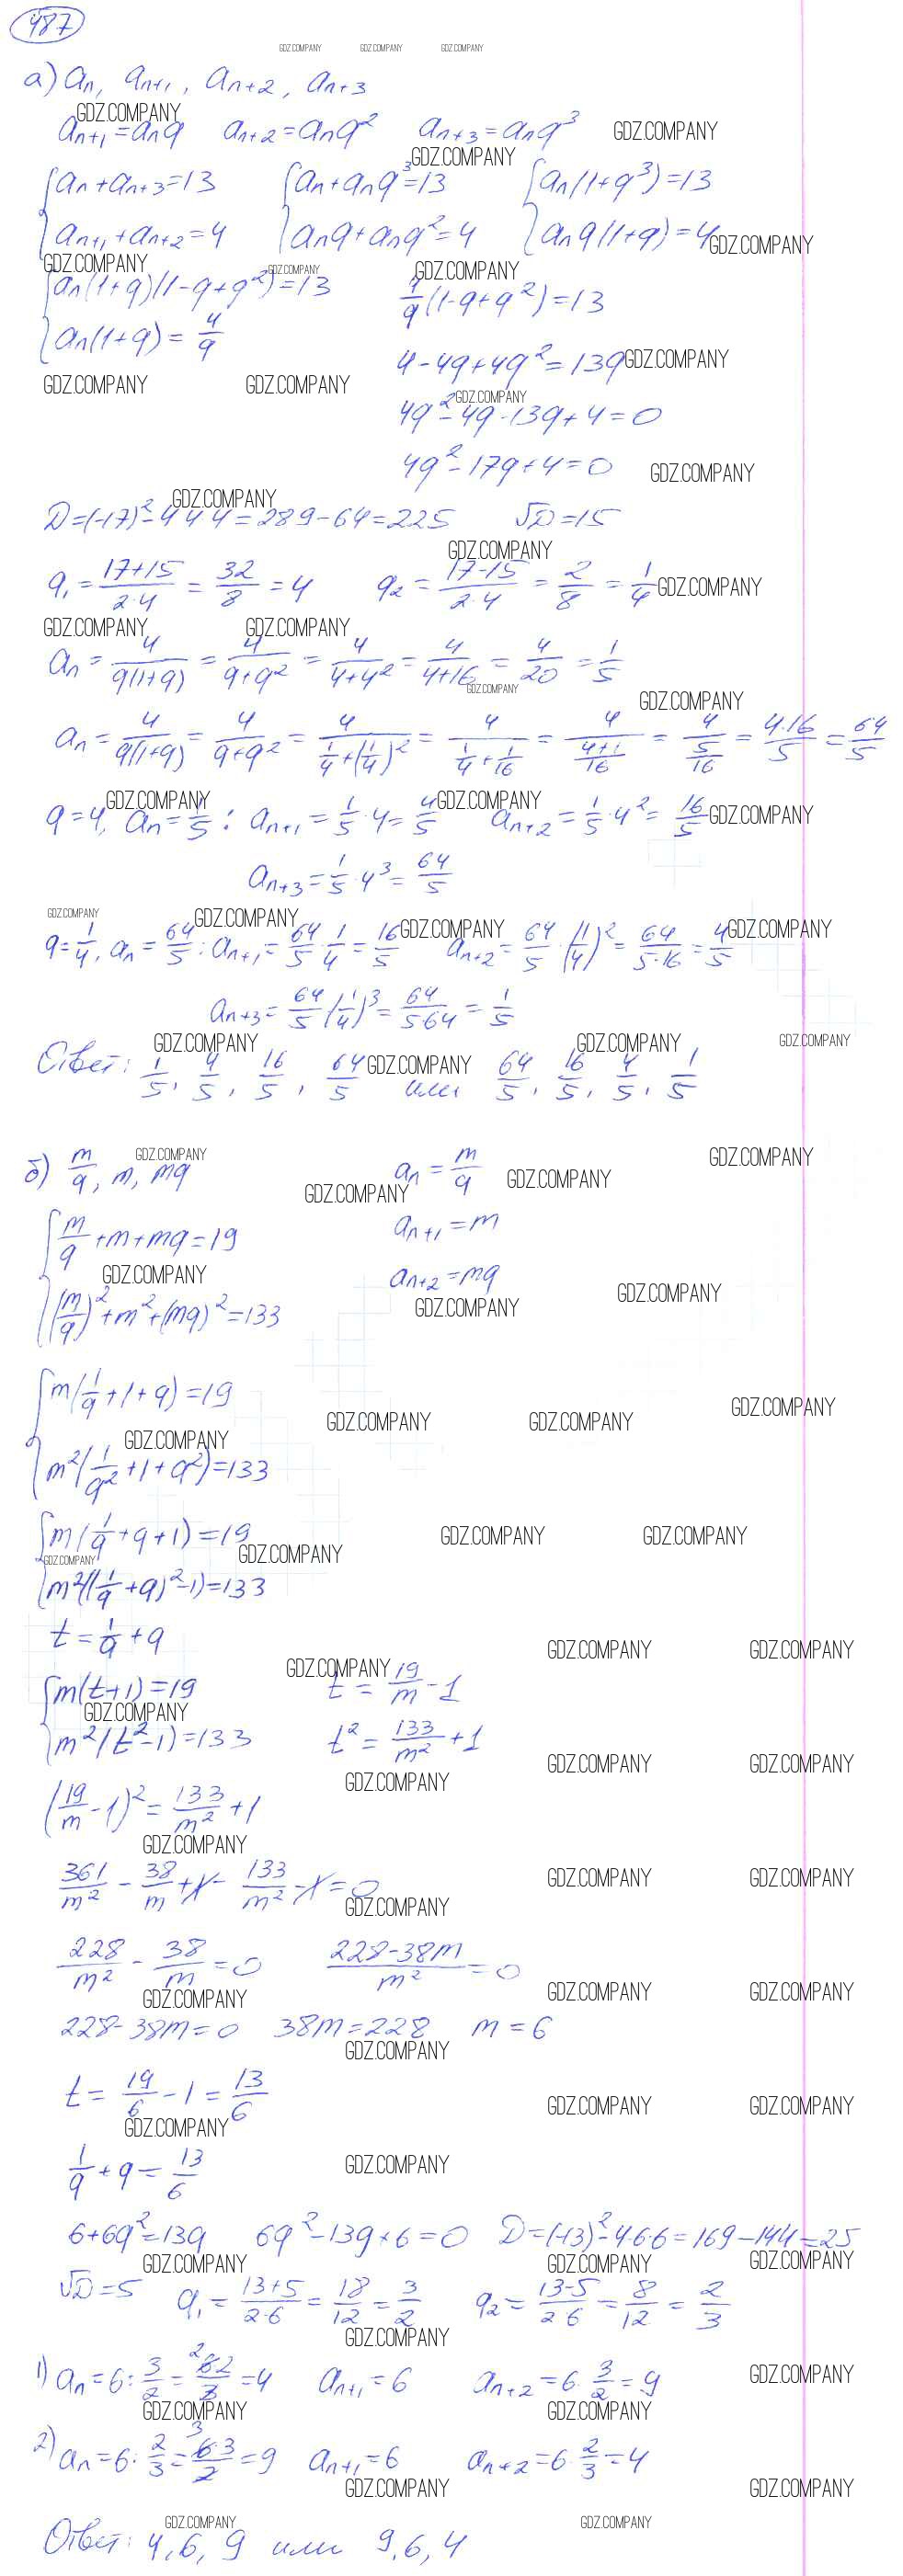 487
GDZ.COMPANY GDZ.COMPANY GDZ.COMPANY
а) aₙ, aₙ₊₁, aₙ₊₂, aₙ₊₃
GDZ.COMPANY
aₙ₊₁=aₙq aₙ₊₂=aₙq² aₙ₊₃=aₙq³ GDZ.COMPANY
GDZ.COMPANY
{aₙ+aₙ₊₃=13 {aₙ+aₙq³=13 {aₙ(1+q³)=13
{aₙ₊₁+aₙ₊₂=4 {aₙq+aₙq²=4 {aₙq(1+q)=4 GDZ.COMPANY
GDZ.COMPANY GDZ.COMPANY GDZ.COMPANY
{aₙ(1+q)(1-q+q²)=13 4/q(1-q+q²)=13
{aₙ(1+q)=4/q
4-4q+4q²=13q GDZ.COMPANY
GDZ.COMPANY GDZ.COMPANY GDZ.COMPANY
4q²-4q-13q+4=0
4q²-17q+4=0 GDZ.COMPANY
GDZ.COMPANY
D=(-17)²-4·4·4=289-64=225 √D=15
GDZ.COMPANY
q₁=(17+15)/(2·4)=32/8=4 q₂=(17-15)/(2·4)=2/8=1/4 GDZ.COMPANY
GDZ.COMPANY GDZ.COMPANY
aₙ=4/(q(1+q))=4/(q+q²)=4/(4+4²)=4/(4+16)=4/20=1/5
GDZ.COMPANY GDZ.COMPANY
aₙ=4/(q(1+q))=4/(q+q²)=4/(1/4+(1/4)²)=4/(1/4+1/16)=4/((4+1)/16)=4/(5/16)=4·16/5=64/5
GDZ.COMPANY GDZ.COMPANY
q=4, aₙ=1/5: aₙ₊₁=1/5·4=4/5 aₙ₊₂=1/5·4²=16/5 GDZ.COMPANY
aₙ₊₃=1/5·4³=64/5
GDZ.COMPANY GDZ.COMPANY GDZ.COMPANY GDZ.COMPANY
q=1/4, aₙ=64/5: aₙ₊₁=64/5·1/4=16/5 aₙ₊₂=64/5·(1/4)²=64/(5·16)=4/5
aₙ₊₃=64/5(1/4)³=64/(5·64)=1/5
GDZ.COMPANY GDZ.COMPANY GDZ.COMPANY
Ответ: 1/5, 4/5, 16/5, 64/5 GDZ.COMPANY или 64/5, 16/5, 4/5, 1/5
GDZ.COMPANY GDZ.COMPANY
б) m/q, m, mq aₙ=m/q GDZ.COMPANY
GDZ.COMPANY
{m/q+m+mq=19 aₙ₊₁=m
GDZ.COMPANY aₙ₊₂=mq GDZ.COMPANY
{(m/q)²+m²+(mq)²=133 GDZ.COMPANY
{m(1/q+1+q)=19 GDZ.COMPANY
GDZ.COMPANY GDZ.COMPANY GDZ.COMPANY
{m²(1/q²+1+q²)=133
{m(1/q+q+1)=19 GDZ.COMPANY GDZ.COMPANY
GDZ.COMPANY GDZ.COMPANY
{m²((1/q+q)²-1)=133
t=1/q+q GDZ.COMPANY GDZ.COMPANY
GDZ.COMPANY
{m(t+1)=19 t=19/m-1
GDZ.COMPANY
{m²(t²-1)=133 t²=133/m²+1
GDZ.COMPANY GDZ.COMPANY GDZ.COMPANY
(19/m-1)²=133/m²+1
GDZ.COMPANY
361/m²-38/m+1-133/m²-1=0 GDZ.COMPANY GDZ.COMPANY
GDZ.COMPANY
228/m²-38/m=0 (228-38m)/m²=0
GDZ.COMPANY GDZ.COMPANY GDZ.COMPANY
228-38m=0 38m=228 m=6
GDZ.COMPANY
t=19/6-1=13/6 GDZ.COMPANY GDZ.COMPANY
GDZ.COMPANY
1/q+q=13/6 GDZ.COMPANY
6+6q²=13q 6q²-13q+6=0 D=(-13)²-4·6·6=169-144=25
GDZ.COMPANY GDZ.COMPANY GDZ.COMPANY
√D=5 q₁=(13+5)/(2·6)=18/12=3/2 q₂=(13-5)/(2·6)=8/12=2/3
GDZ.COMPANY
1) aₙ=6:3/2=6·2/3=4 aₙ₊₁=6 aₙ₊₂=6·3/2=9 GDZ.COMPANY
GDZ.COMPANY GDZ.COMPANY
2) aₙ=6·2/3=6·3/2=9 aₙ₊₁=6 aₙ₊₂=6·2/3=4
GDZ.COMPANY GDZ.COMPANY
GDZ.COMPANY GDZ.COMPANY
Ответ: 4, 6, 9 или 9, 6, 4